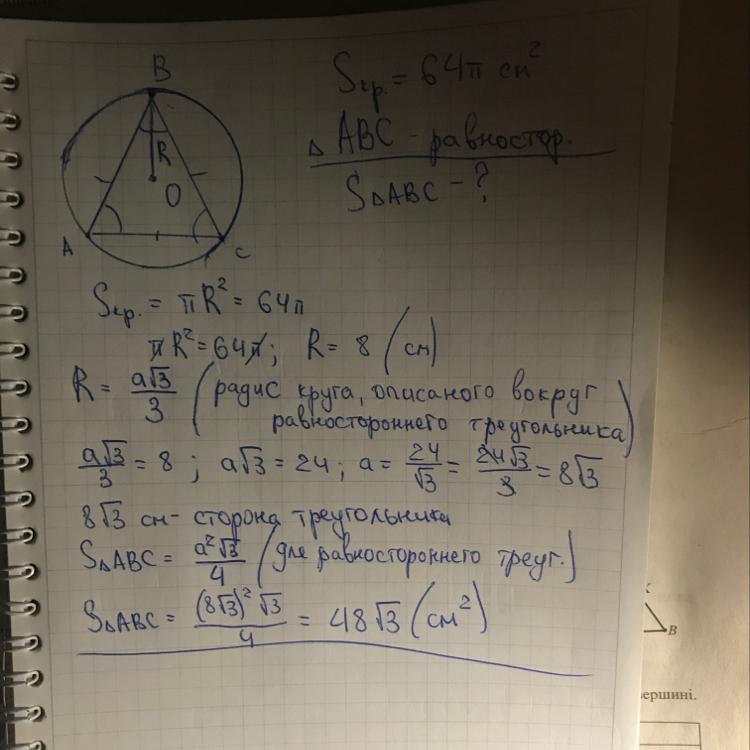 B
R
O
A
C
Sкр. = 64π см²
△ ABC - равностор.
S△ABC - ?
Sкр. = πR² = 64π
πR² = 64π; R = 8 (см)
R = a√3/3 (радис круга, описаного вокруг
равностороннего треугольника)
a√3/3 = 8; a√3 = 24; a = 24/√3 = 24√3/3 = 8√3
8√3 см - сторона треугольника
S△ABC = a²√3/4 (для равностороннего треуг.)
S△ABC = (8√3)²√3/4 = 48√3 (см²)
K
B
ершині.